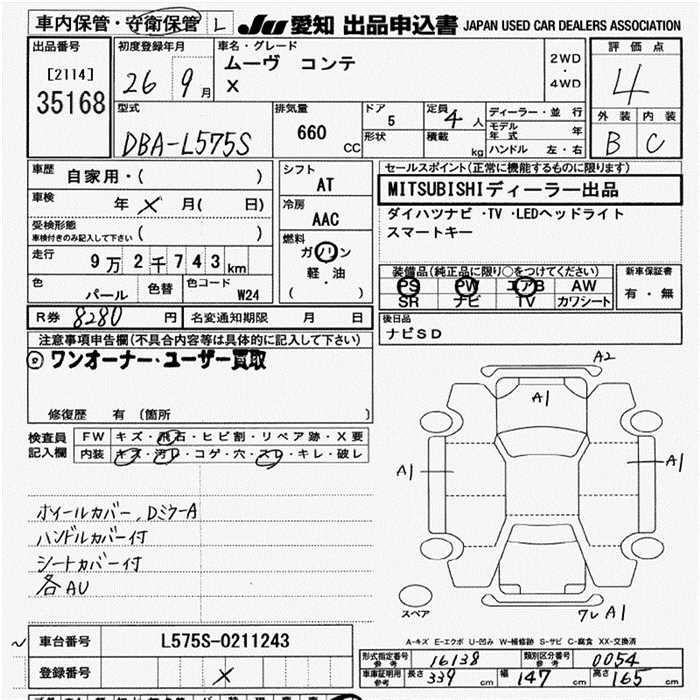 車内保管・守衛保管 L JU 愛知 出品申込書 JAPAN USED CAR DEALERS ASSOCIATION
出品番号 初度登録年月 車名・グレード 評価点
[2114] 26 9月 ムーヴ コンテ 2WD・4WD 4
35168 X
外装 内装
型式 排気量 ドア 定員 ディーラー・並行
DBA-L575S 660 CC 5 4人 モデル年式 年
形状 積載 kg ハンドル 左・右 B C
車歴 自家用・( ) シフト セールスポイント(正常に機能するものに限ります)
AT MITSUBISHIディーラー出品
車検 年 X 月( 日) 冷房 ダイハツナビ ・TV ・LEDヘッドライト
受検形態 AAC スマートキー
車検付きのみ記入して下さい ( )
走行 9万2千743km 燃料 ガソリン
軽・油
( )
装備品(純正品に限り○をつけてください) 新車保証書
色 パール 色替 色コード W24 PS PW エアB AW 有・無
SR ナビ TV カワシート
R券 8280円 名変通知期限 月 日 後日品
ナビSD
注意事項申告欄(不具合内容等は具体的に記入して下さい)
◎ワンオーナー・ユーザー買取
修復歴 有 (箇所 )
検査員記入欄 FW キズ・飛石・ヒビ割・リペア跡・X要
内装 キズ・汚レ・コゲ・穴・スレ・キレ・破レ
A2
A1
A1 A1
ホイールカバー、DミラーA
ハンドルカバー付
シートカバー付
各AU
スペア フレA1
A-キズ E-エクボ U-凹み W-補修跡 S-サビ C-腐食 XX-交換済
〜 車台番号 L575S-0211243
形式指定番号 参考 16138 類別区分番号 参考 0054
登録番号 X 車庫証明用 参考 長さ 339cm 幅 147cm 高さ 165cm